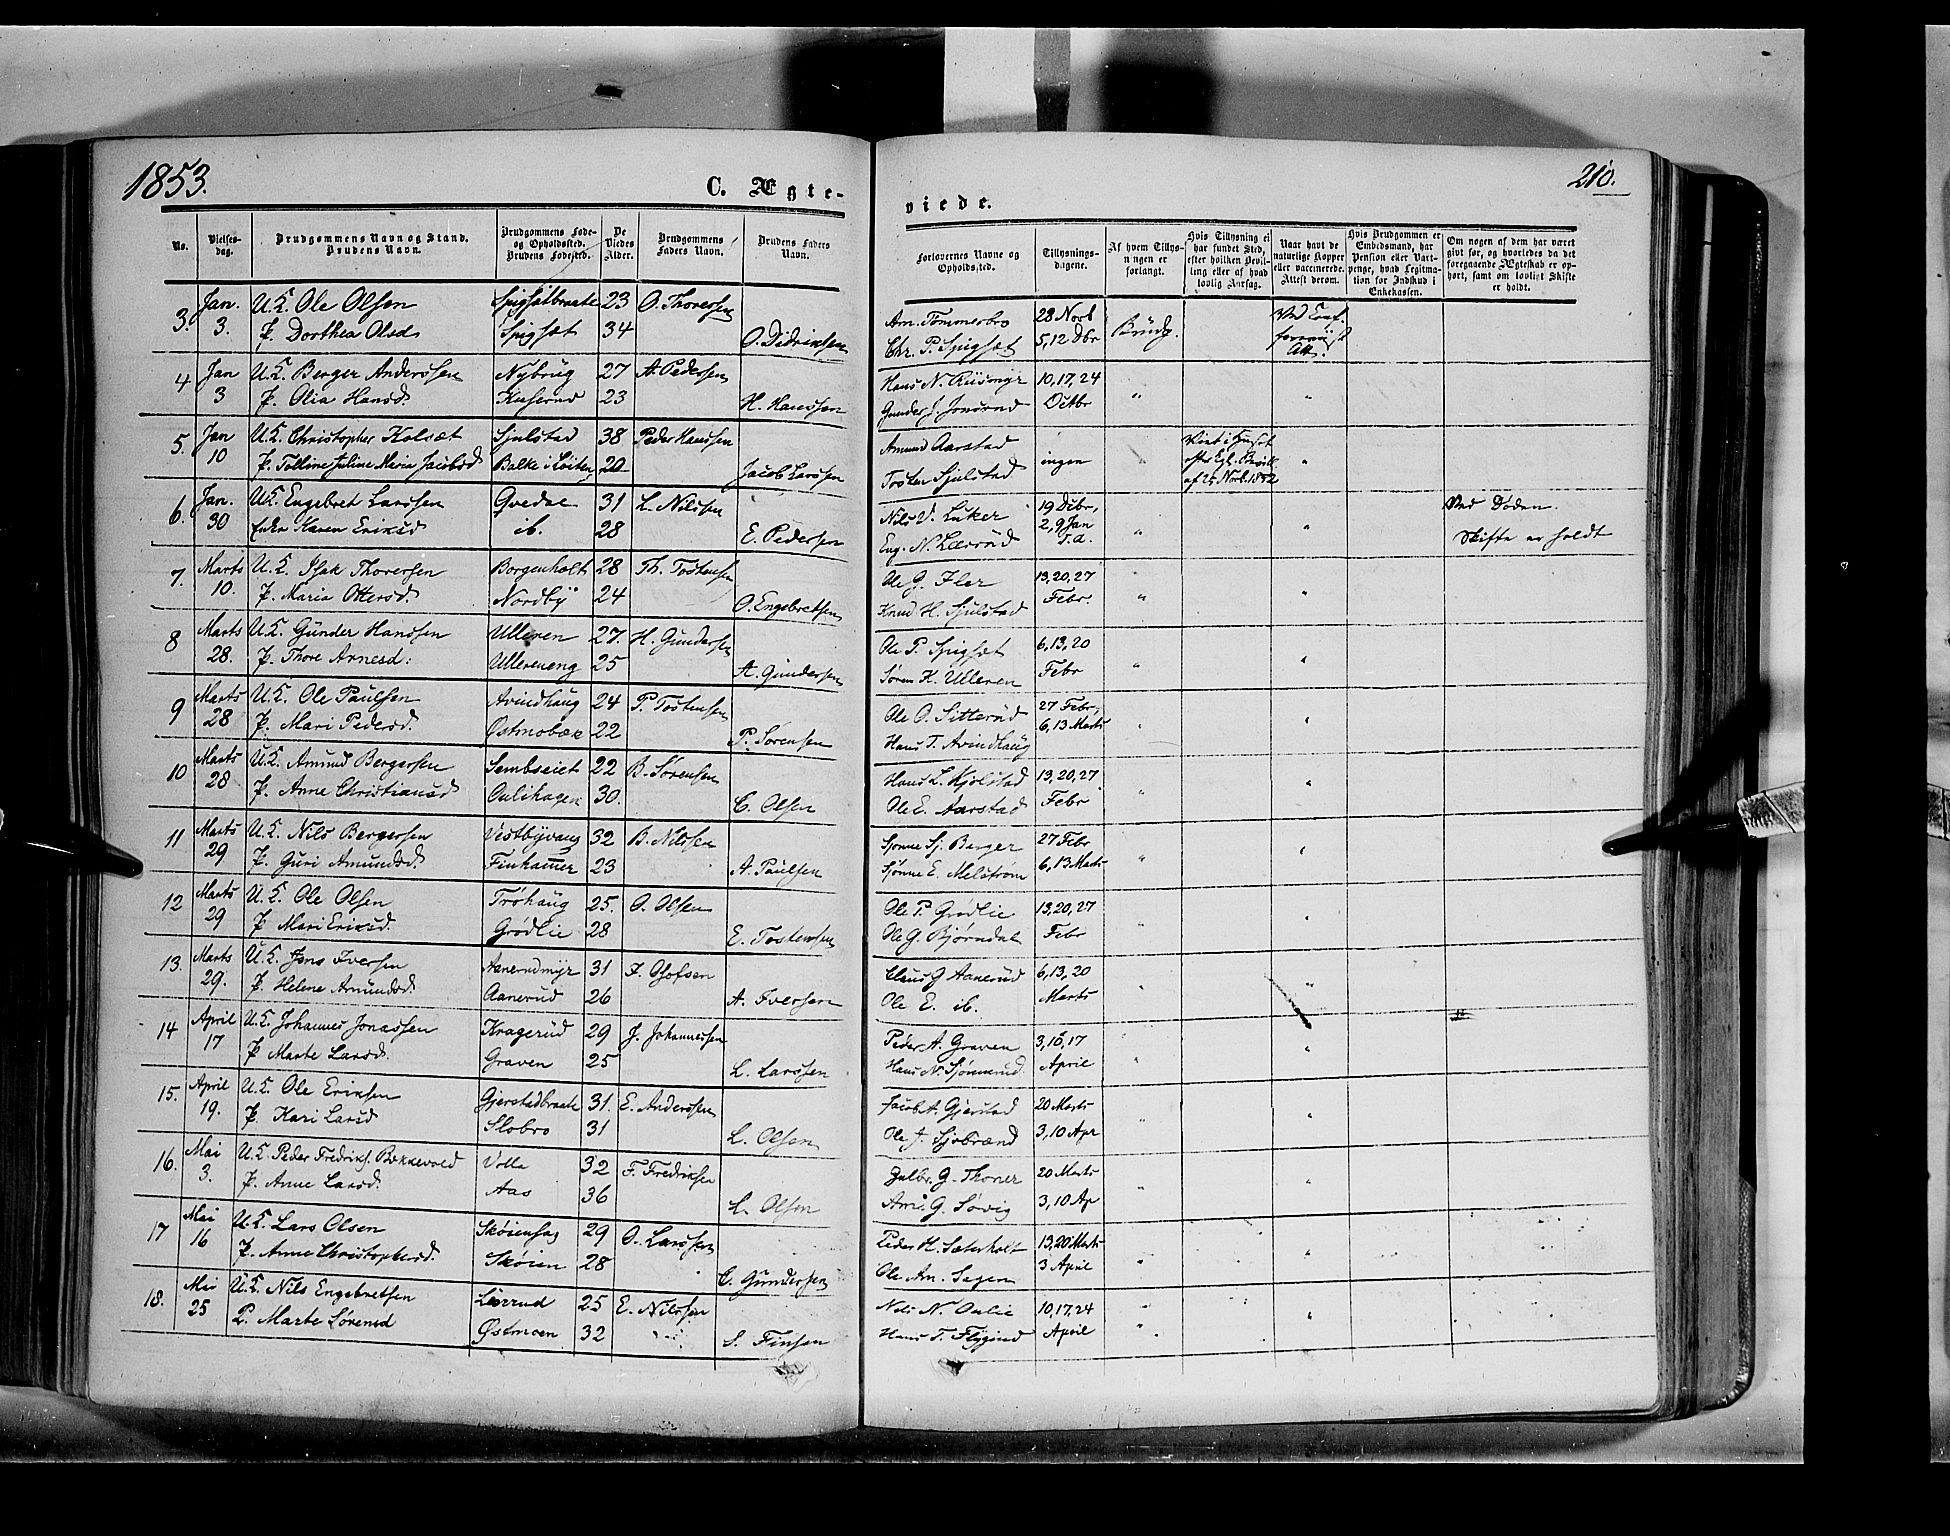 1853.
C. Ægte-
viede.
210.
No.
Vielses-
dag.
Brudgommens Navn og Stand.
Brudens Navn.
Brudgommens Føde-
og Opholdssted.
Brudens Fødested.
De
Viedes
Alder.
Brudgommens
Faders Navn.
Brudens Faders
Navn.
Forlovernes Navne og
Opholdssted.
Tillysnings-
dagene.
Af hvem Tillys-
ningen er
forlangt.
Hvis Tillysning ei
har fundet Sted,
efter hvilken Bevil-
ling eller af hvad
lovlig Aarsag.
Naar havt de
naturlige Kopper
eller vaccinerede.
Attest derom.
Hvis Brudgommen er
Embedsmand, har
Pension eller Vart-
penge, hvad Legitima-
tion for Indskud i
Enkekassen.
Om nogen af dem har været
givt før, og hvorledes da det
foregaaende Ægteskab er op-
hørt, samt om lovligt Skifte
er holdt.
3. Jan. 3. U.K. Ole Olsen Spigsætbraate 23 O. Thoresen Am. Tommerbro 28 Novb
P. Dorthea Olsd Spigsæt 34 O. Didriksen Chr. P. Spigsæt 5, 12 Dbr Brudg.
4 Jan 3 U.K. Berger Anderssen Nybrug 27 A. Pedersen Hans N. Riismyr 10, 17, 24 "
P. Olia Hansd. 23 H. Hanssen Octbr "
5. Jan 10 U.K. Christopher Kolsæt Sjulstad 38 Peder Hanssen Amund Aarstad ingen " Viet i Huset
P. Tolline Juline Maria Jacobsd Balke i Løiten 20 Jacob Larssen Tosten Sjulstad af 25 Novb. 1852 "
6. Jan. 30 U.K. Engebret Larssen Gvedae 31 L. Nilssen Nils V. Luker 19 Debr, Ved Døden.
Enke Karen Eriksd ib. 28 E. Pedersen Eug. N. Lærrud 2, 9 Jan " " Skifte er holdt
7. Marts 10. U.K. Isak Thoresen Borgenholt 28 Th. Tostensen Ole G. Fler 13, 20, 27
P. Maria Ottersd. Nordby 24 O. Engebretsen Knud H. Sjulstad Febr. " "
8 Marts 28. U.K. Gunder Hanssen Ulleren 27. H. Gundersen Ole P. Spigsæt 6, 13, 20
P. Thore Arnesd: Ullereneng 25 A. Gundersen Søren H. Ulleren Febr " "
9 Marts 28 U.K. Ole Paulsen Avindhaug 24 P. Tostensen Ole O. Sitterud 27 Febr,
P. Mari Pedersd. Østmobæk 22 P. Sørensen Hans T. Avindhaug 6, 13 Marts " "
10 Marts 28 U.K. Amund Bergersen Sembseiet 22 B. Sørensen Hans L. Kjølstad 13, 20, 27
P. Anne Christiansd Oulihagen 30. C. Olsen Ole E. Aarstad Febr "
11 Marts 29 U.K. Nils Bergersen Vestbyvang 32 B. Nilssen Sjonne Sj. Berger 27 Febr
P. Guri Amundsd. Finhamer 23 A. Paulsen Sjønne E. Melstrøm 6, 13 Marts " "
12 Marts 29 U.K. Ole Olsen Trøhaug 25. O. Olsen Ole P. Grødlie 13, 20, 27
P. Mari Eriksd. Grødlie 28 E. Tostensen Ole G. Bjørndal Febr " "
13. Marts 29. U.K. Jens Iversen Aanerudmyr 31 I. Olofsen Claus G Aanerud 6, 13, 20
P. Helene Amundsd. Aanerud 26 A. Iversen Ole E. ib. Marts " "
14 April 17 U.K. Johannes Jonassen Kragerud 29 J. Johannessen Peder A. Graven 3, 10, 17
P. Marte Larsd. Graven 25 L. Larssen Hans N. Sjønnerud April " "
15. April 19. U.K. Ole Eriksen Gjerstadbraate 31. E. Anderssen Jacob A. Gjerstad 20 Marts
P. Kari Larsd Slobro 31 L. Olsen Ole J. Sjobrænd 3, 10 Apr "
16. Mai 3. U.K. Peder Fredriks. Bakkevold Volla 32 F. Fredriksen Gulbr. G. Thoner 20 Marts
P. Anne Larsd. Aas 36 L. Olsen Arne G. Søvig 3, 10 Ap " "
17 Mai 16 U.K. Lars Olsen Skøienhag 29 O. Larssen Peder H. Sæterholt 13, 20 Marts
P. Anne Christophersd. Skøien 28 C. Gundersen Ole An. Sagen 3 April " "
18. Mai 25 U.K. Nils Engebretsen Lærrud 25 E. Nilssen Nils N. Oulie 10, 17, 24 "
P. Marte Sørensd Østmoen 32 S. Finsen Hans T. Flygind April " "